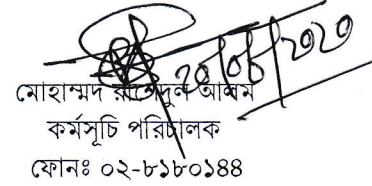 ২০/০৮/২০২০
মোহাম্মদ রাশেদুল আলম
কর্মসূচি পরিচালক
ফোনঃ ০২-৮১৮০১৪৪